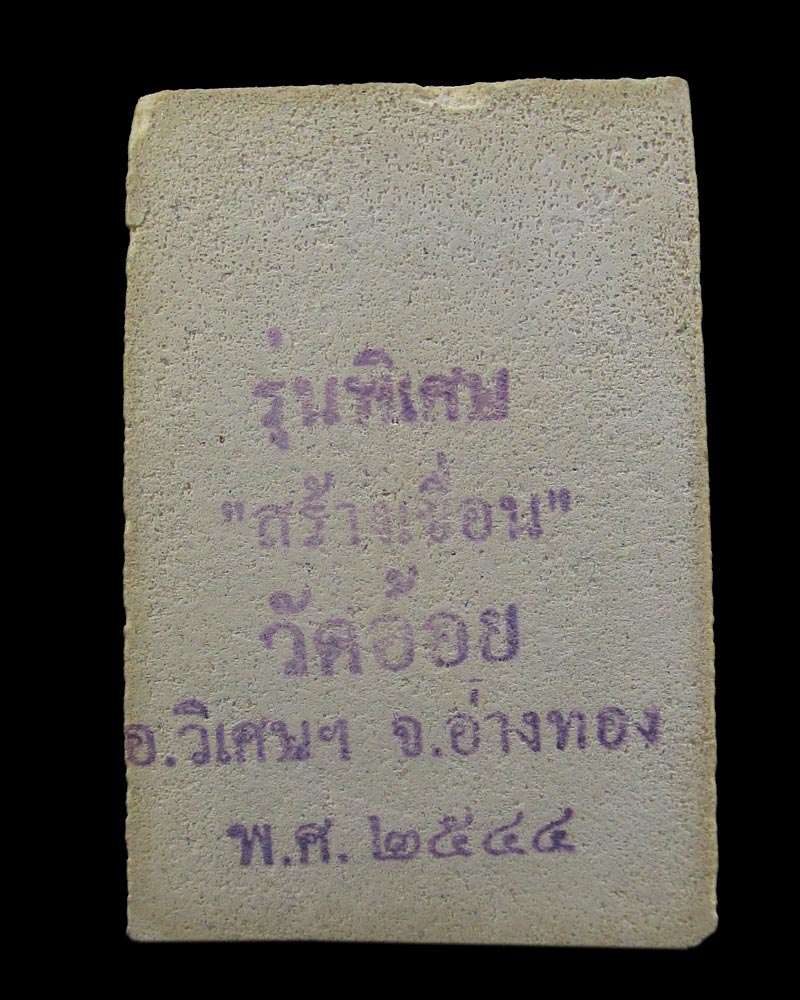 รุ่นพิเศษ
"สร้างเขื่อน"
วัดอ้อย
อ.วิเศษฯ จ.อ่างทอง
พ.ศ. ๒๕๔๔